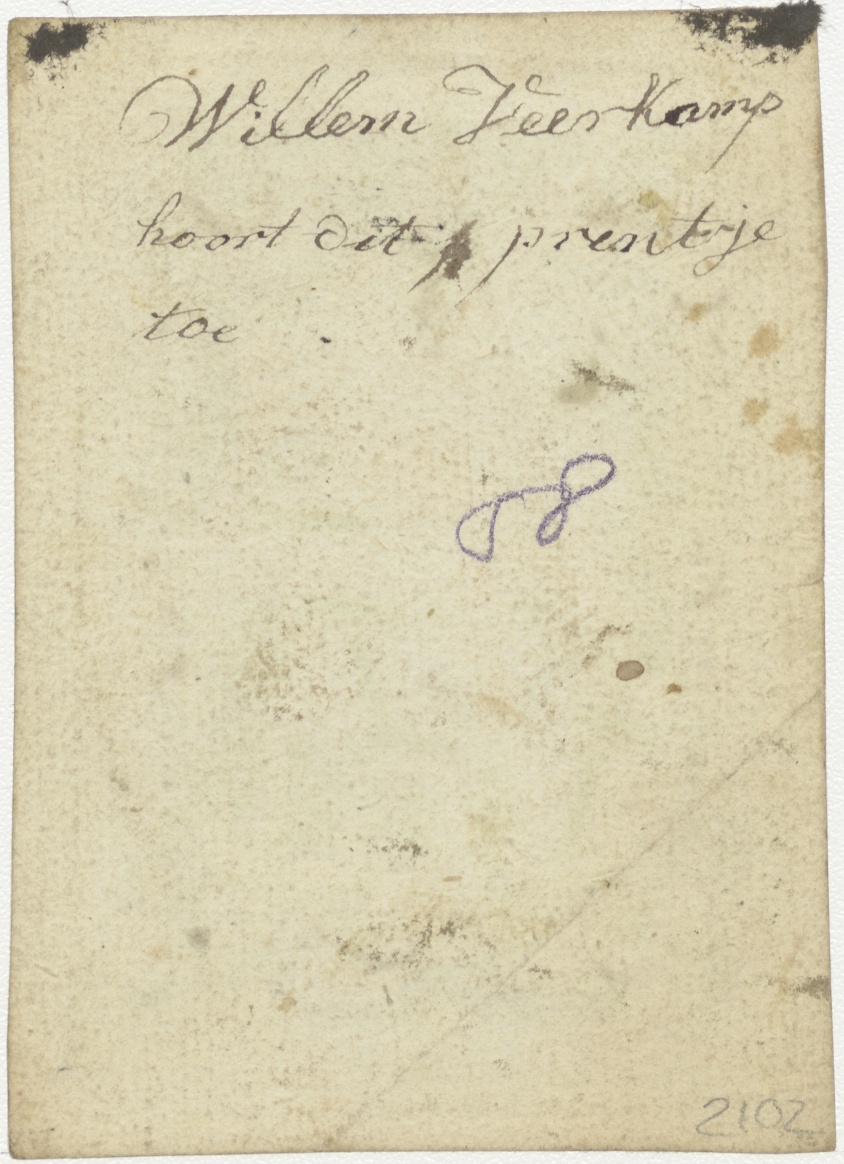 Willem Veerkamp
hoort dit prentje
toe .
58
2102